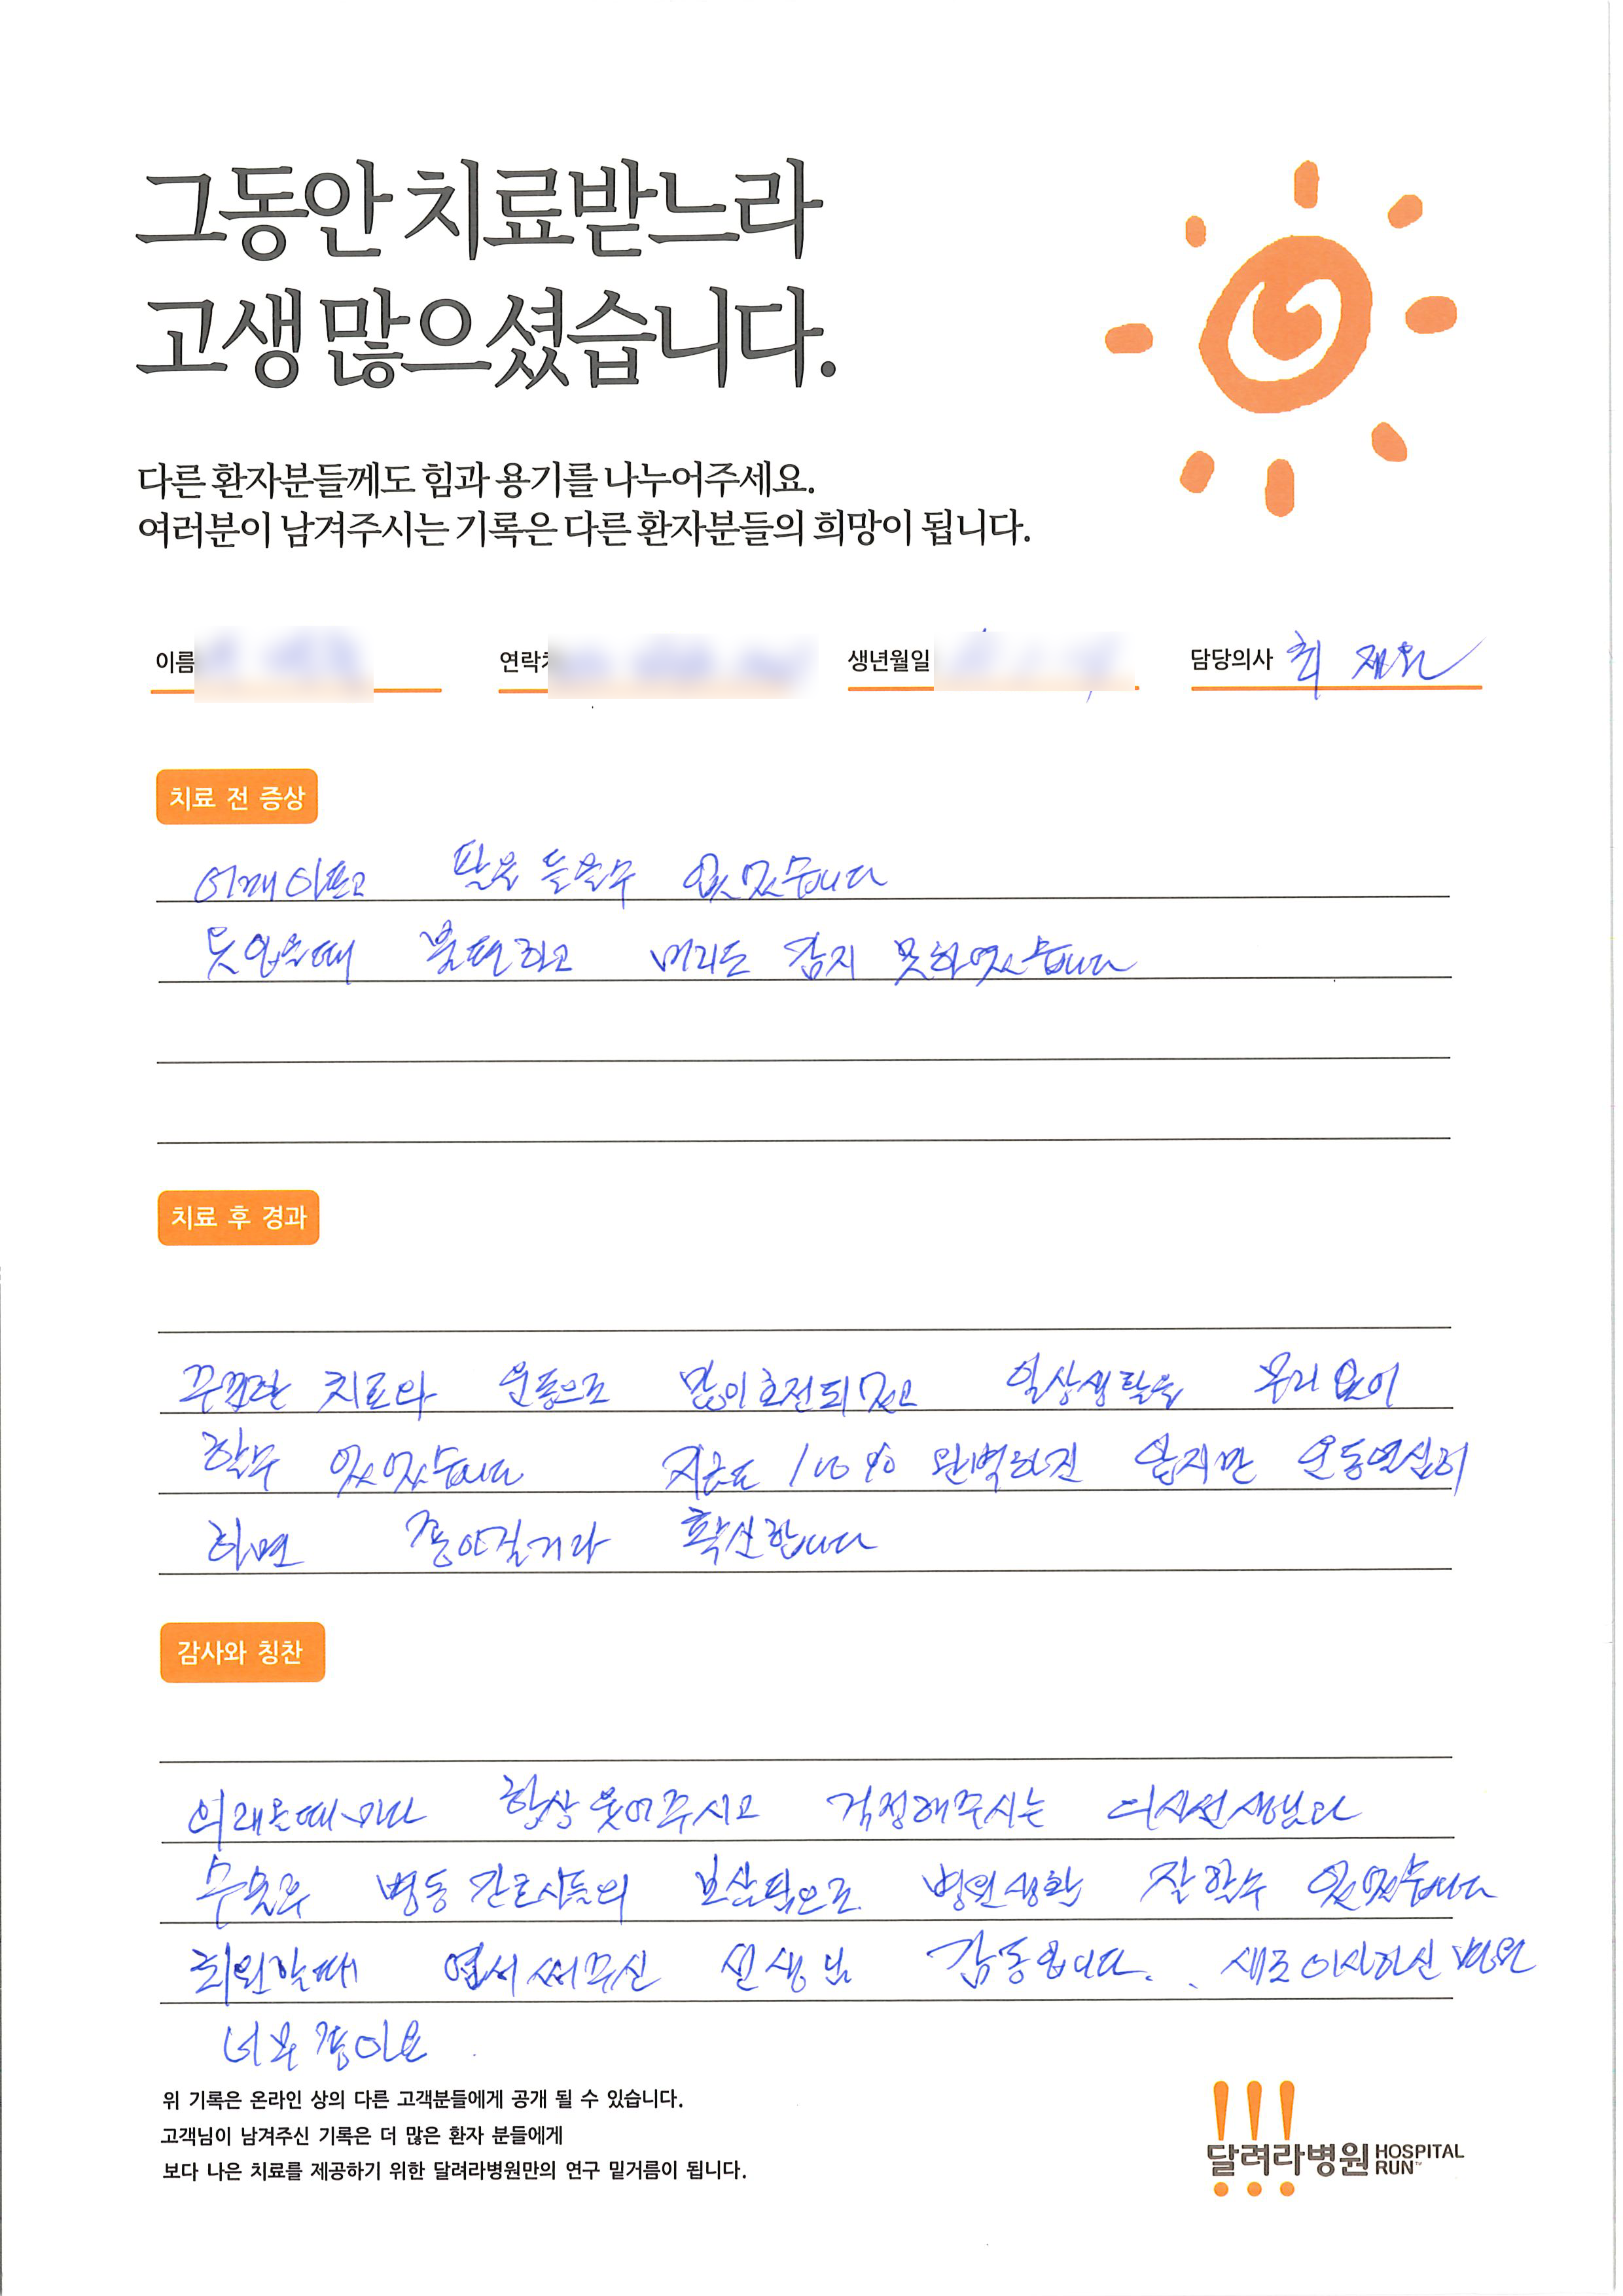 그동안 치료받느라
고생 많으셨습니다.
다른 환자분들께도 힘과 용기를 나누어주세요.
여러분이 남겨주시는 기록은 다른 환자분들의 희망이 됩니다.
이름 연락처 생년월일 담당의사 최재원
치료 전 증상
어깨아프고 팔을 들을수 없었습니다
옷입을때 불편하고 머리도 감지 못하였습니다
치료 후 경과
꾸준한 치료와 운동으로 많이호전되었고 일상생활을 무리없이
할수 있었습니다 지금도 100% 완벽하진 않지만 운동열심히
하면 좋아질거라 확신합니다
감사와 칭찬
외래올때마다 항상 웃어주시고 걱정해주시는 의사선생님과
수술후 병동 간호사들의 보살핌으로 병원생활 잘할수 있었습니다
퇴원할때 엽서써주신 선생님 감동입니다. 새로이사하신 병원
너무 좋아요
위 기록은 온라인 상의 다른 고객분들에게 공개 될 수 있습니다.
고객님이 남겨주신 기록은 더 많은 환자 분들에게
보다 나은 치료를 제공하기 위한 달려라병원만의 연구 밑거름이 됩니다.
달려라병원 HOSPITAL RUN